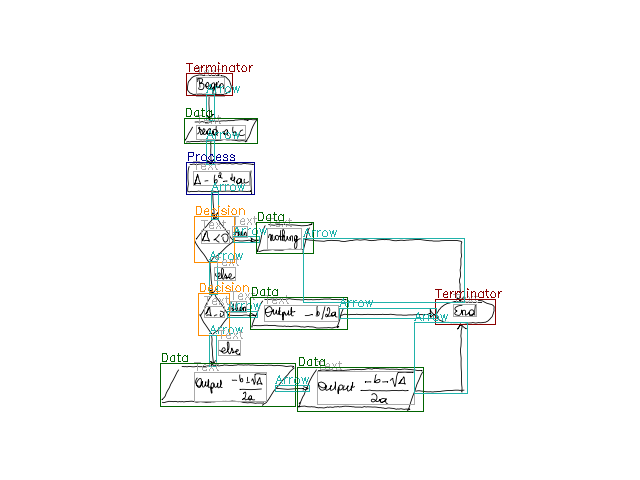 Terminator
Begin
Arrow
Data
Text
read a b c
Arrow
Process
Text
Δ - b² - 4ac
Arrow
Decision
Text
Δ < 0
Text
Arrow
Data
Text
nothing
Arrow
Arrow
Text
else
Decision
Text
Δ = 0
Text
Arrow
Data
Text
Output -b/2a
Arrow
Terminator
Text
End
Arrow
Arrow
Text
else
Data
Text
Output -b+√Δ / 2a
Arrow
Data
Text
Output -b-√Δ / 2a
Arrow